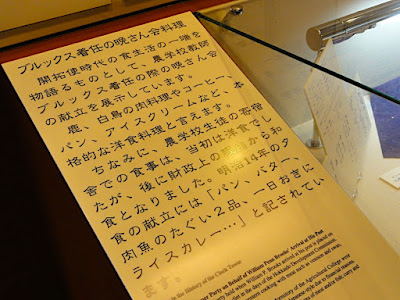 ブルックス着任の晩さん会料理
開拓使時代の食生活の一端を
物語るものとして、農学校教師
ブルックス着任の際の晩さん会
の献立を展示しています。
鹿、白鳥の肉料理やコーヒー、
パン、アイスクリームなど、本
格的な洋食料理と言えます。
ちなみに、農学校生徒の寄宿
舎での食事は、当初は洋食でし
たが、後に財政上の
から和
食となりました。明治14年の夕
食の献立には「パン、バター、
肉魚のたぐい2品、一日おきに
ライスカレー…」と記されてい
ます。
in the History of the Clock Tower
Party on Behalf of William Penn Brooks' Arrival at His Post
held when William P. Brooks arrived at his post is
in the days of the Hokkaido Development Commission.
cooking with meat such as venison and swan,
of the Agricultural College were
style due to financial reasons
of meat and/or fish, curry and